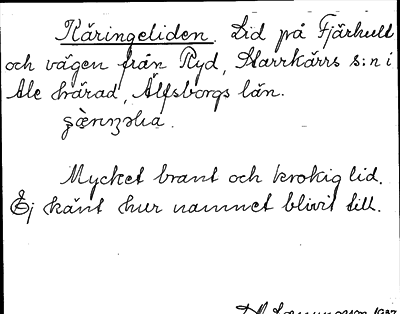 Käringeliden. Lid på Fjärhult
och vägen från Ryd, Starrkärrs s:n i
Ale härad, Älfsborgs län.
Mycket brant och krokig lid.
Ej känt hur namnet blivit till.